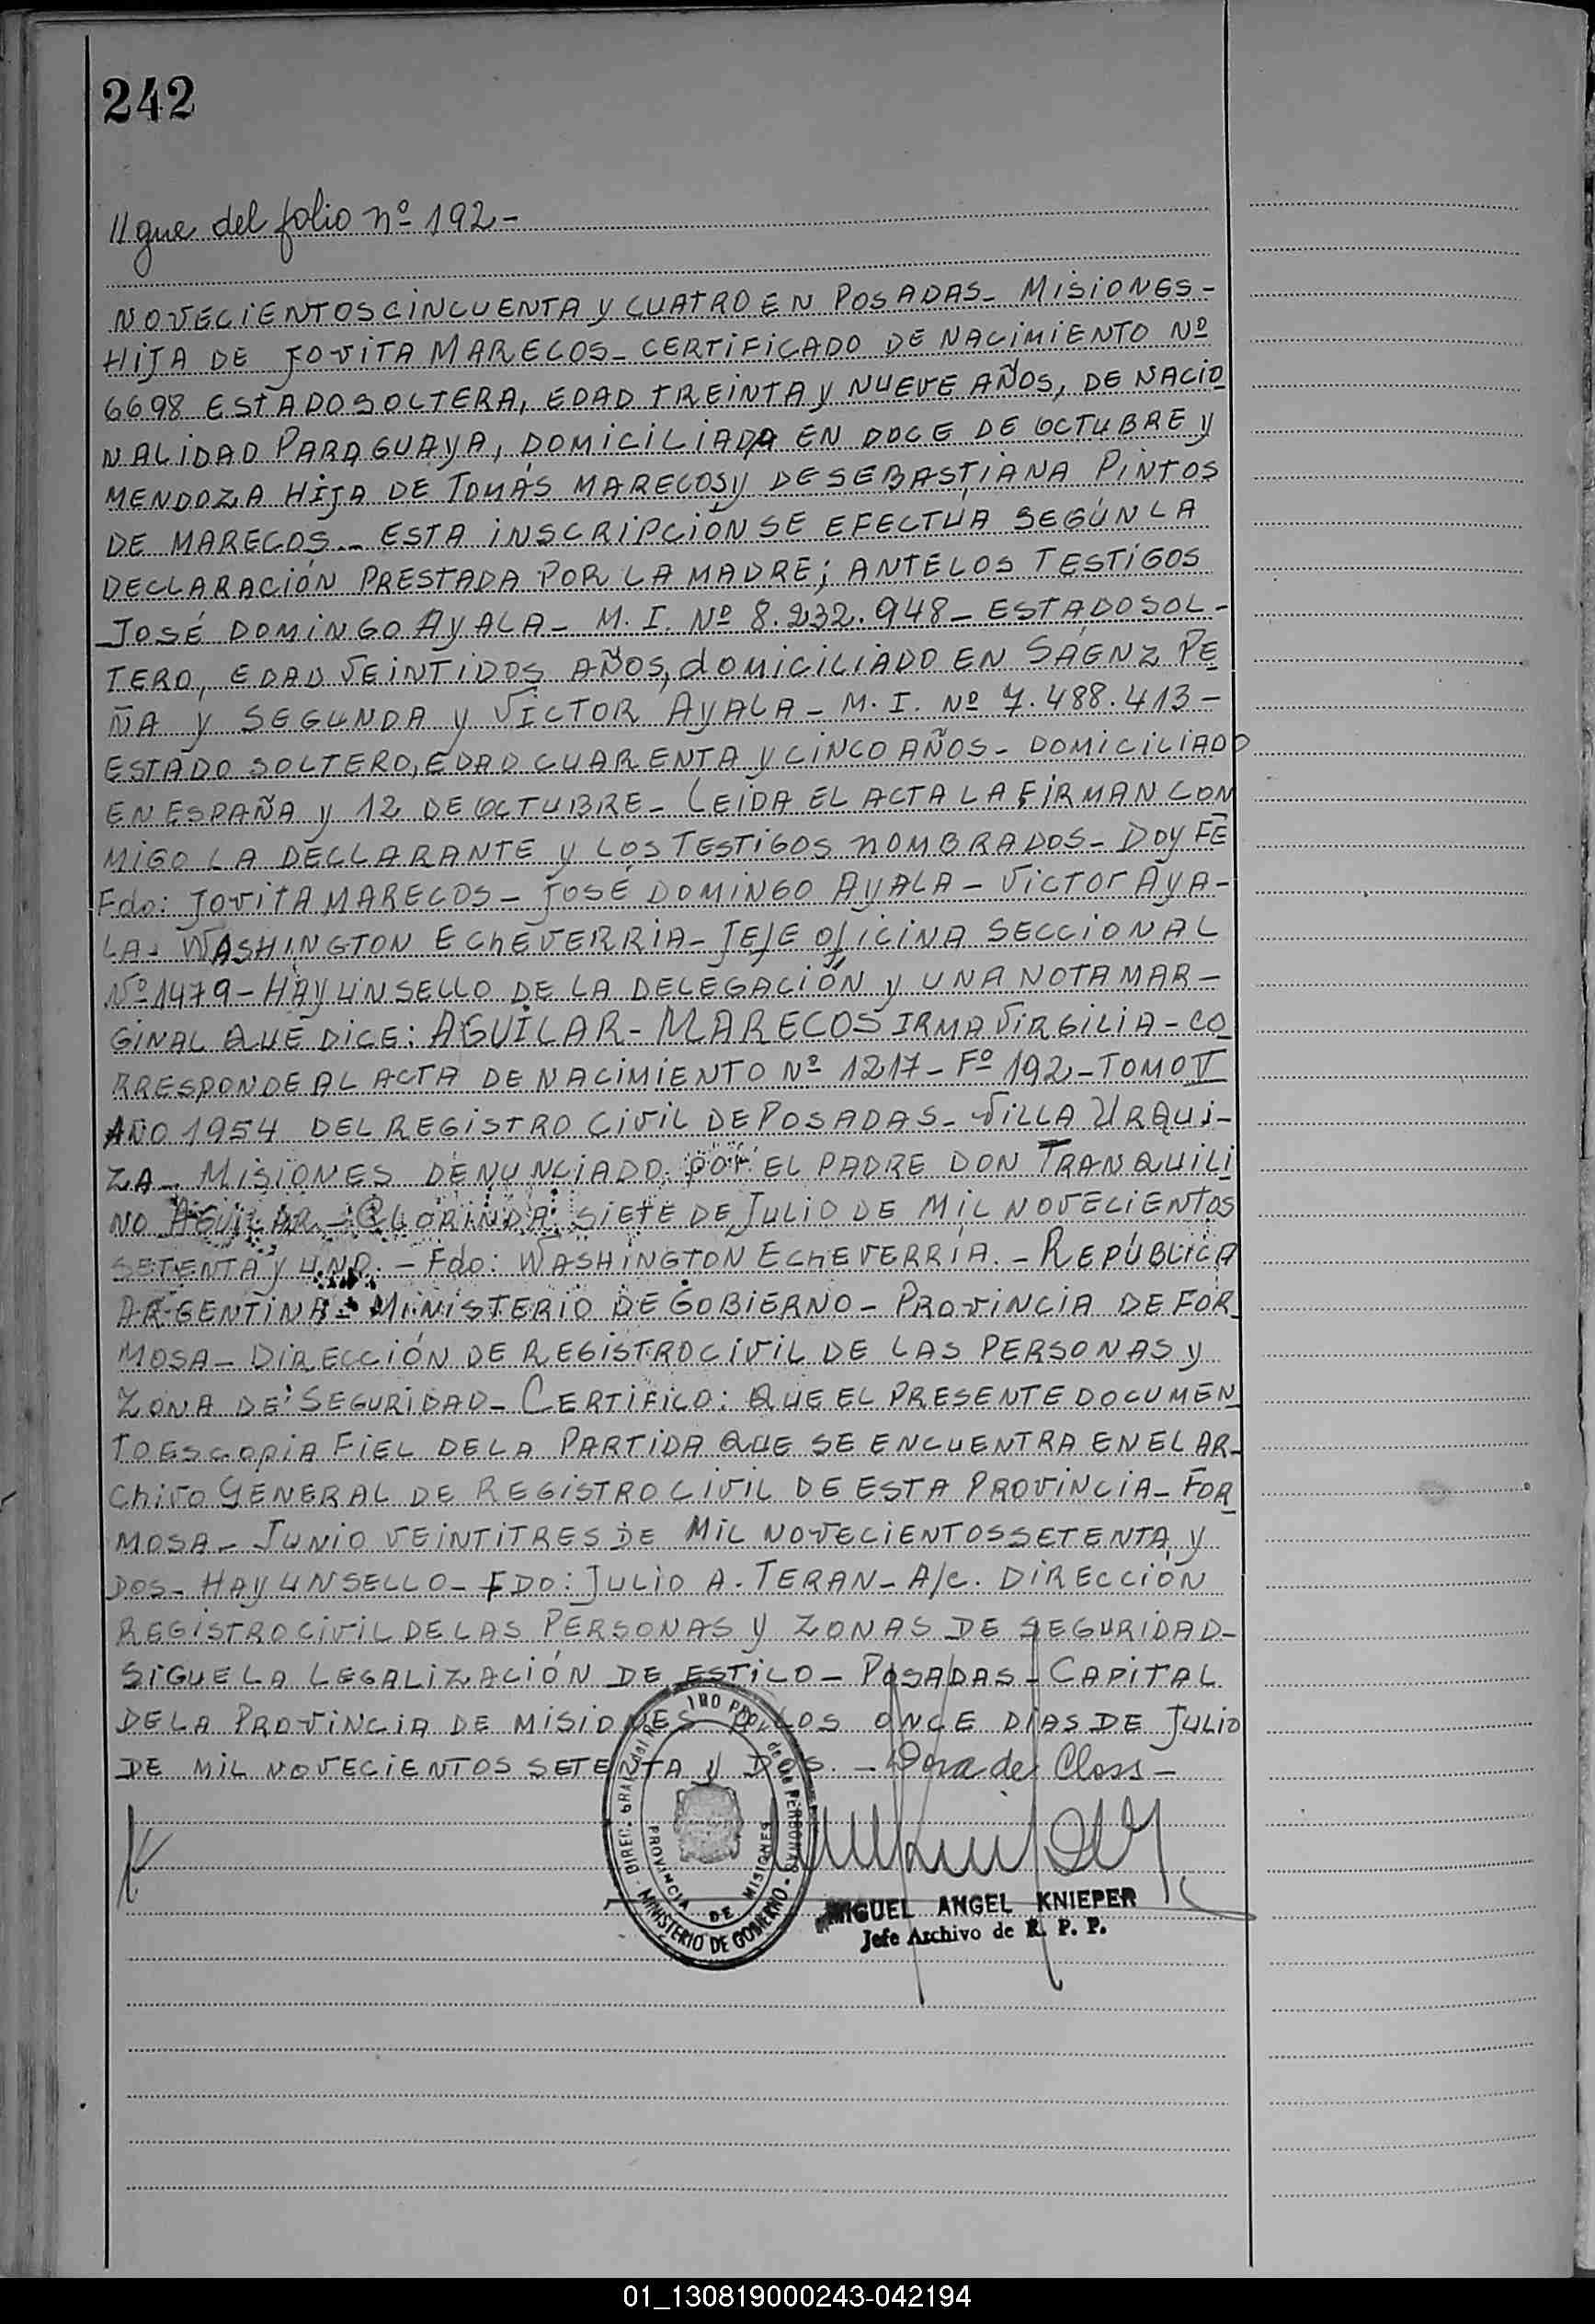 242
//gue del folio nº 192-
NOVECIENTOS CINCUENTA y CUATRO EN POSADAS- MISIONES-
HIJA DE JOVITA MARECOS- CERTIFICADO DE NACIMIENTO Nº
6698 ESTADO SOLTERA, EDAD TREINTA y NUEVE AÑOS, DE NACIO
NALIDAD PARAGUAYA, DOMICILIADA EN DOCE DE OCTUBRE y
MENDOZA HIJA DE TOMÁS MARECOS y DE SEBASTIANA PINTOS
DE MARECOS-- ESTA INSCRIPCIÓN SE EFECTUA SEGÚN LA
DECLARACIÓN PRESTADA POR LA MADRE; ANTE LOS TESTIGOS
JOSÉ DOMINGO AYALA- M. I. Nº 8.232.948- ESTADO SOL-
TERO, EDAD VEINTIDOS AÑOS, DOMICILIADO EN SÁENZ PE
ÑA y SEGUNDA y VICTOR AYALA- M. I. Nº 7.488.413-
ESTADO SOLTERO, EDAD CUARENTA y CINCO AÑOS- DOMICILIADO
EN ESPAÑA y 12 DE OCTUBRE- LEIDA EL ACTA LA FIRMAN CON
MIGO LA DECLARANTE y LOS TESTIGOS NOMBRADOS- DOY FE
Fdo: JOVITA MARECOS- JOSÉ DOMINGO AYALA- VICTOR AYA-
LA- WASHINGTON ECHEVERRIA- JEFE OFICINA SECCIONAL
Nº 1479- HAY UN SELLO DE LA DELEGACIÓN y UNA NOTA MAR-
GINAL QUE DICE: AGUILAR- MARECOS IRMA VIRGILIA- CO
RRESPONDE AL ACTA DE NACIMIENTO Nº 1217- Fº 192- TOMO V
AÑO 1954 DEL REGISTRO CIVIL DE POSADAS- VILLA URQUI-
ZA- MISIONES DENUNCIADO POR EL PADRE DON TRANQUILI
NO AGUILAR- CLORINDA SIETE DE JULIO DE MIL NOVECIENTOS
SETENTA y UNO.- Fdo: WASHINGTON ECHEVERRÍA.- REPÚBLICA
ARGENTINA- MINISTERIO DE GOBIERNO- PROVINCIA DE FOR
MOSA- DIRECCIÓN DE REGISTRO CIVIL DE LAS PERSONAS y
ZONA DE SEGURIDAD- CERTIFICO: QUE EL PRESENTE DOCUMEN
TO ES COPIA FIEL DE LA PARTIDA QUE SE ENCUENTRA EN EL AR-
CHIVO GENERAL DE REGISTRO CIVIL DE ESTA PROVINCIA- FOR
MOSA- JUNIO VEINTITRES DE MIL NOVECIENTOS SETENTA y
DOS- HAY UN SELLO- FDO: JULIO A. TERAN- A/c. DIRECCIÓN
REGISTRO CIVIL DE LAS PERSONAS y ZONAS DE SEGURIDAD-
SIGUE LA LEGALIZACIÓN DE ESTILO- POSADAS- CAPITAL
DE LA PROVINCIA DE MISIONES A LOS ONCE DIAS DE JULIO
DE MIL NOVECIENTOS SETENTA y DOS.- Dora de Closs-
DIREC. GRAL. del de las PERSONAS - MINISTERIO DE GOBIERNO
PROVINCIA DE MISIONES
MIGUEL ANGEL KNIEPER
Jefe Archivo de R. P. P.
01_130819000243-042194